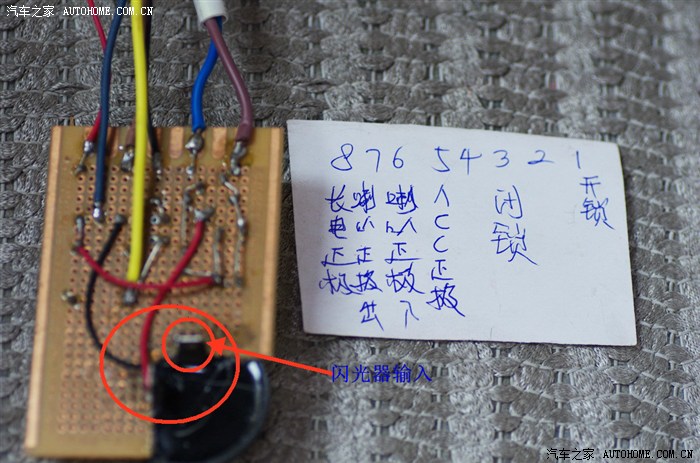 汽车之家 AUTOHOME.COM.CN
8 7 6 5 4 3 2 1
长电正极
喇叭正极出
喇叭正极入
ACC正极
闭锁
开锁
闪光器输入
汽车之家 AUTOHOME.COM.CN